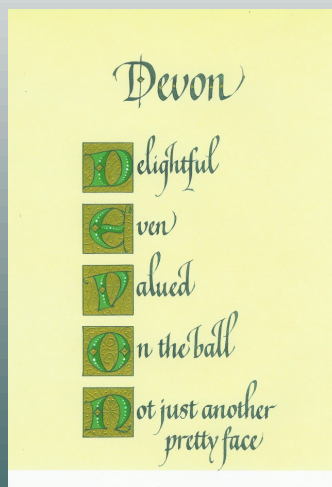 Devon
Delightful
Even
Valued
On the ball
Not just another
pretty face